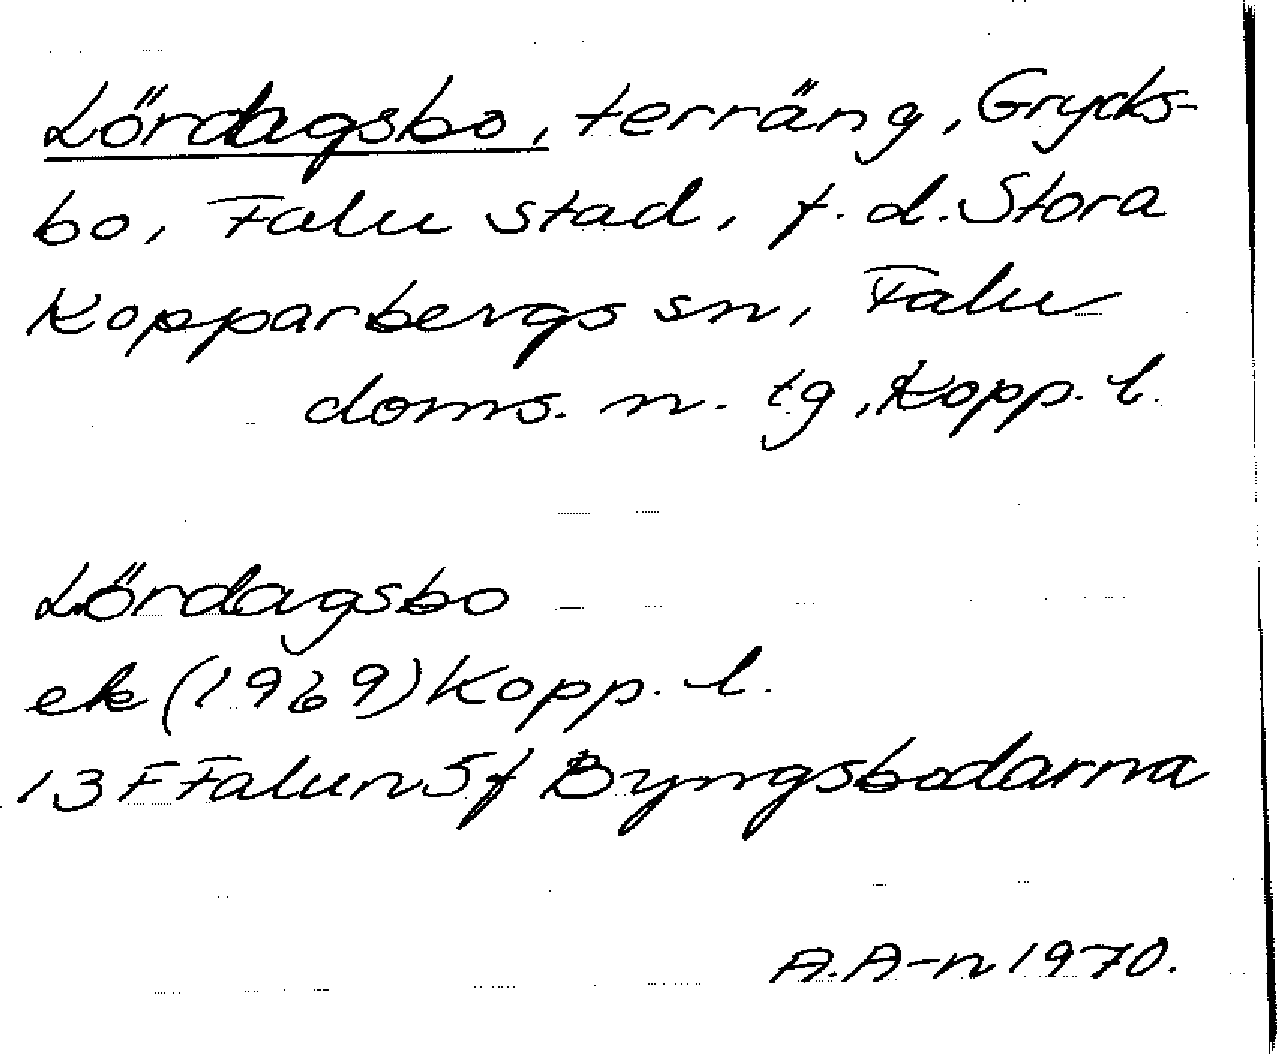 Lördagsbo, terräng, Grycks-
bo, Falu stad, f. d. Stora
Kopparbergs sn, Falu
doms. n. tg, Kopp. l.
Lördagsbo
ek (1969) Kopp. l.
13 F Falun 5 f Byngsbodarna
A. A-n 1970.